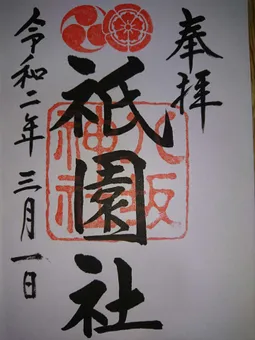 奉拝
祇園社
八坂神社
令和二年三月一日